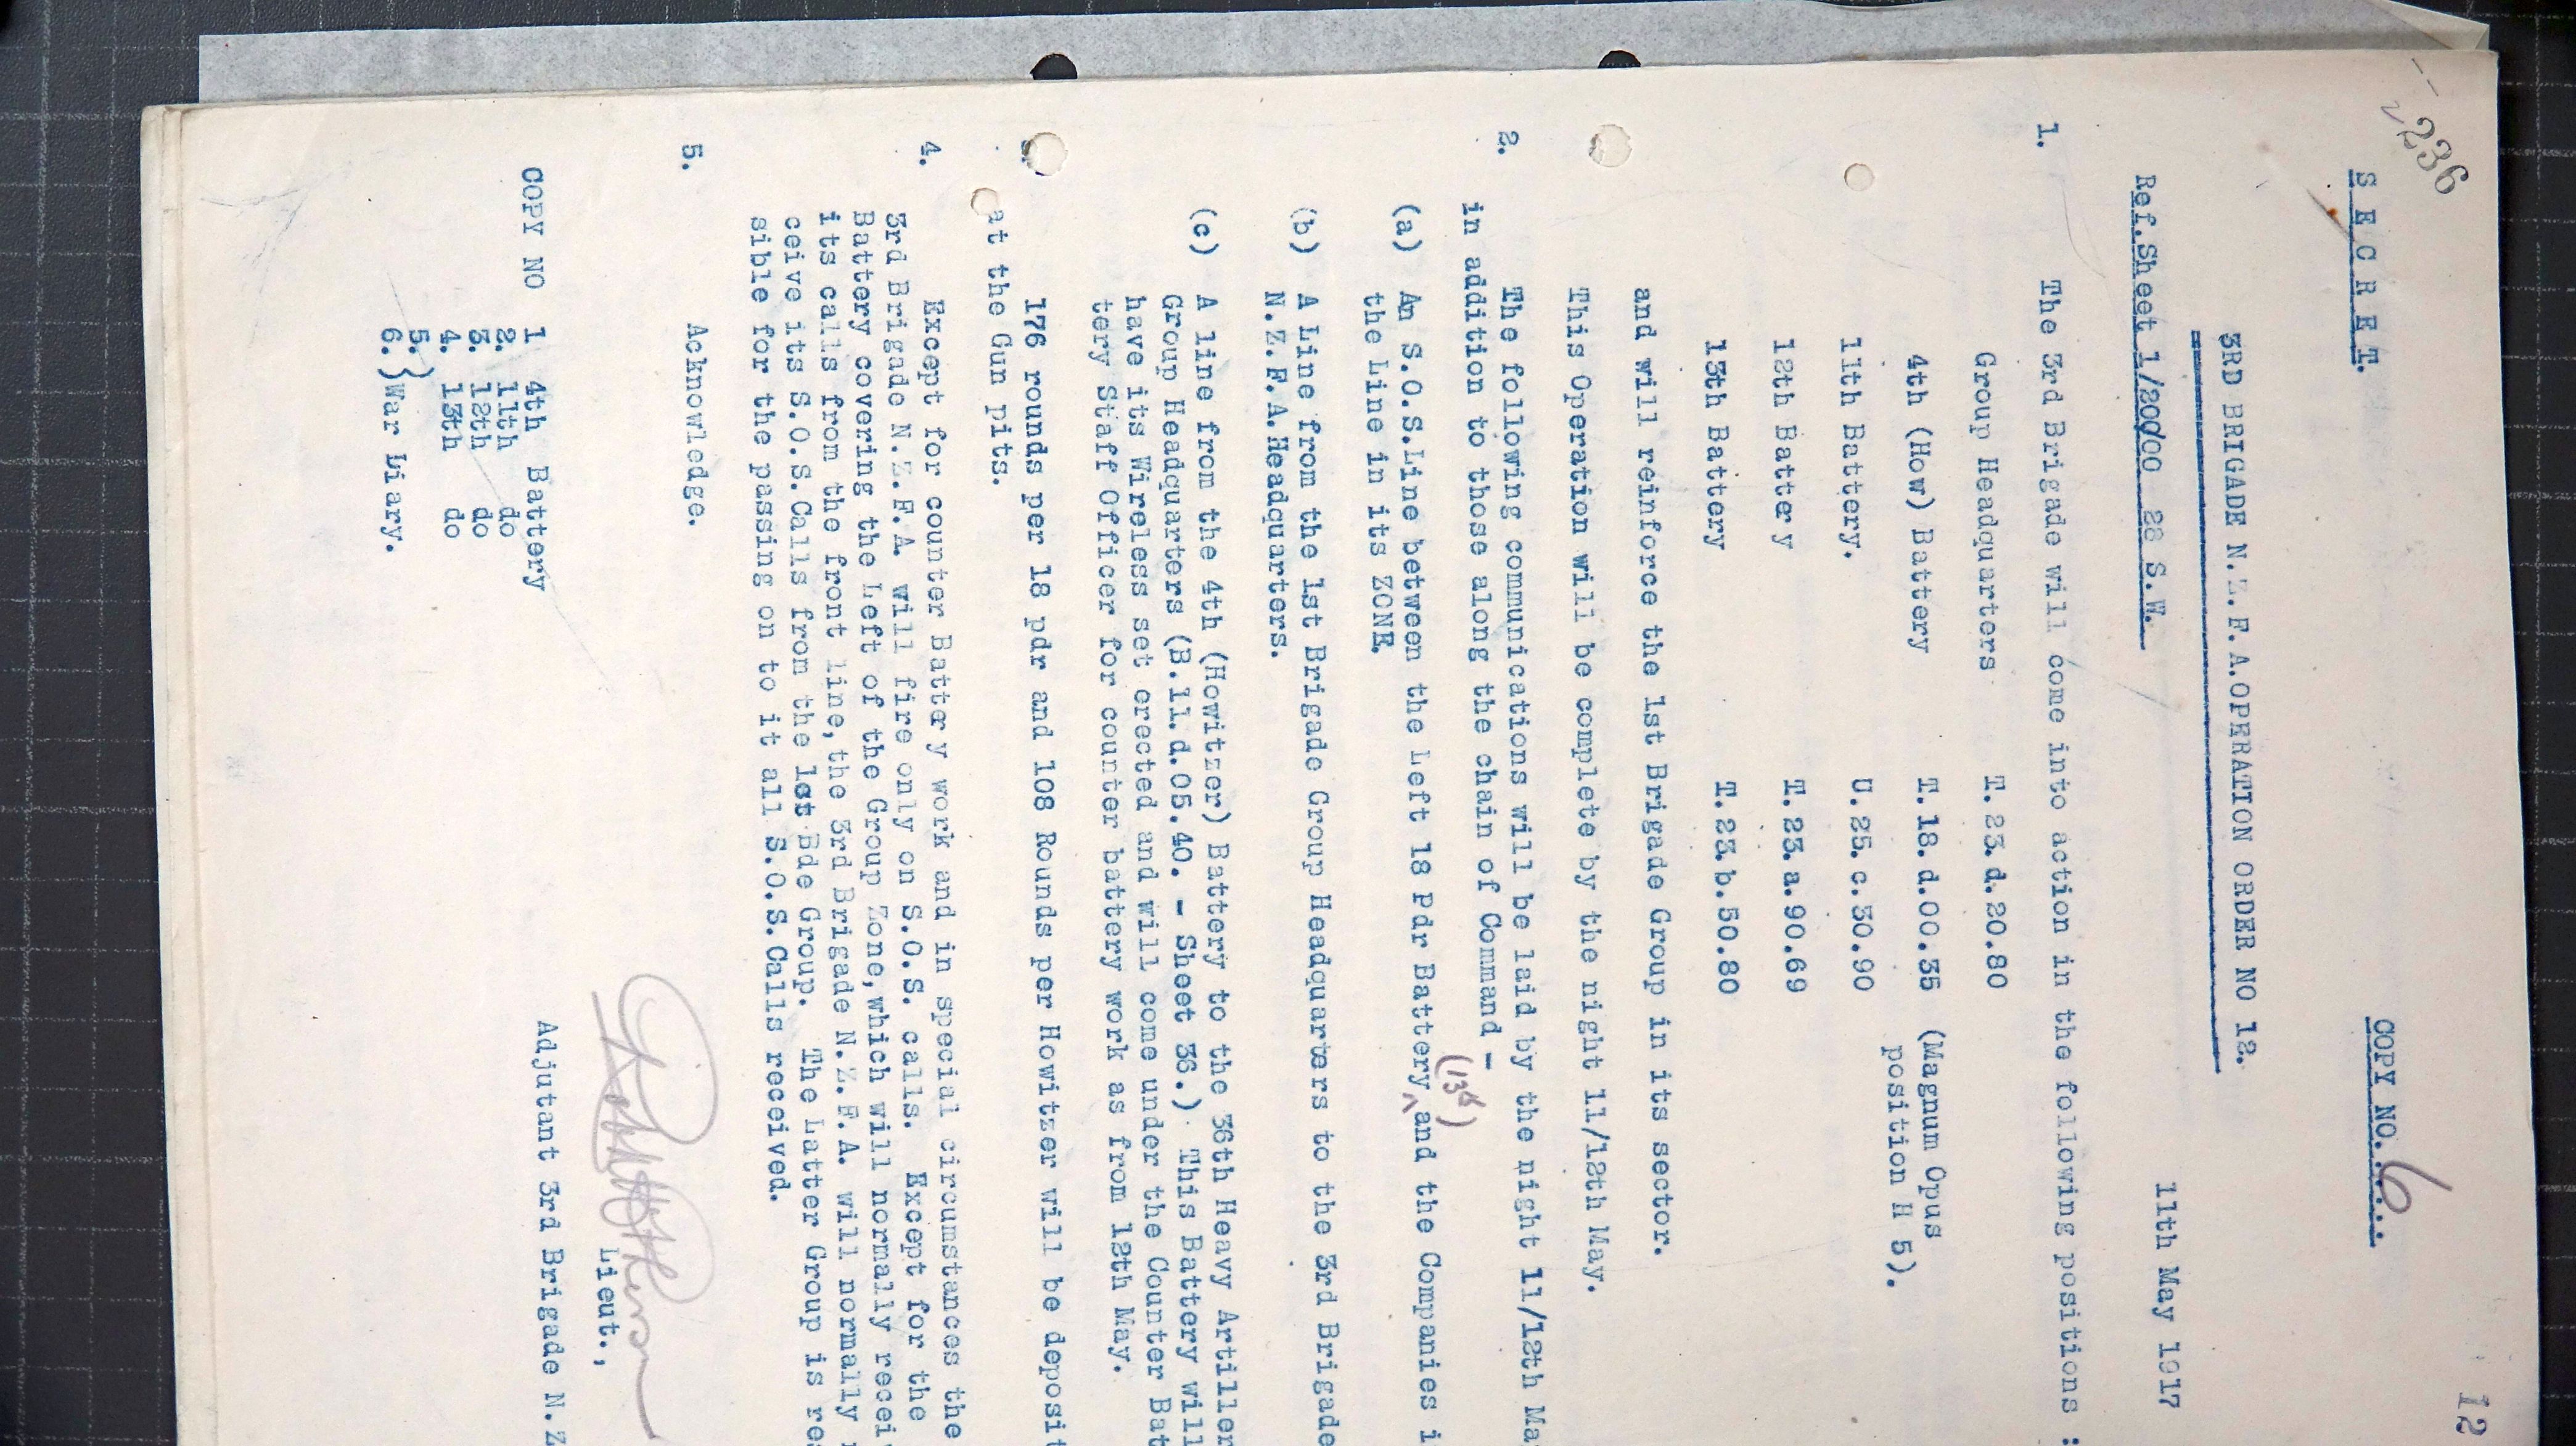 236
12
S E C R E T.
COPY NO. 6
3RD BRIGADE N.Z.F.A.OPERATION ORDER NO 12.
11th May 1917
Ref.Sheet 1/20000 28 S.W.
1. The 3rd Brigade will come into action in the following positions :
Group Headquarters T. 23. d. 20.80
4th (How) Battery T. 18. d.00.35 (Magnum Opus
position H 5).
11th Battery. U. 25. c.30.90
12th Batter y T. 23.a.90.69
13th Battery T. 23. b.50.80
and will reinforce the 1st Brigade Group in its sector.
This Operation will be complete by the night 11/12th May.
2. The following communications will be laid by the night 11/12th Ma
in addition to those along the chain of Command -
(13th)
(a) An S.O.S.Line between the Left 18 Pdr Battery and the Companies i
the Line in its ZONE.
(b) A Line from the 1st Brigade Group Headquarters to the 3rd Brigade
N.Z.F.A.Headquarters.
(c) A line from the 4th (Howitzer) Battery to the 36th Heavy Artiller
Group Headquarters (B.11.d.05.40. - Sheet 36.) This Battery will
have its Wireless set erected and will come under the Counter Bat
tery Staff Officer for counter battery work as from 12th May.
176 rounds per 18 pdr and 108 Rounds per Howitzer will be deposit
at the Gun pits.
4. Except for counter Battery work and in special circumstances the
3rd Brigade N.Z.F.A. will fire only on S.O.S. calls. Except for the
Battery covering the Left of the Group Zone,which will normally recei
its calls from the front line,the 3rd Brigade N.Z.F.A. will normally r
ceive its S.O.S.Calls from the 1st Bde Group. The Latter Group is res
sible for the passing on to it all S.O.S.Calls received.
5. Acknowledge.
Lieut.,
Adjutant 3rd Brigade N.Z
COPY NO 1 4th Battery
2. 11th do
3. 12th do
4. 13th do
5.)
6.)War Diary.